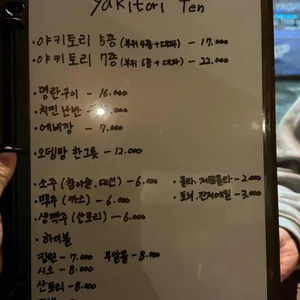 yakitori Ten
· 야키토리 5종 (부위 4종 + 대파) - 17.000
· 야키토리 7종 (부위 6종 + 대파) - 22.000
· 명란구이 - 16.000
· 치킨난반 -
· 에비깡 - 7.000
· 오뎅탕 한그릇 - 12.000
· 소주 (참이슬. 대선) - 6.000 · 콜라. 제로콜라 - 2.000
· 맥주 (카스) - 6.000 · 토닉. 진저에일 - 3.000
· 생맥주 (산토리) - 6.000
· 하이볼
짐빔 - 7.000 부알볼 - 8.000
시소 - 8.000
산토리 - 8.000